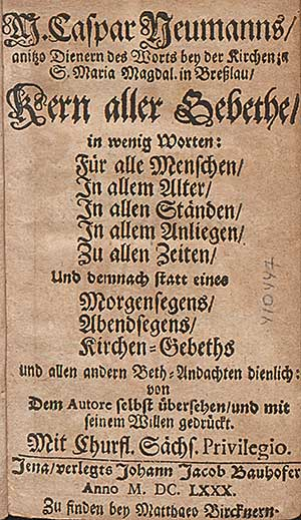 M. Caspar Neumanns/
anitzo Dienern des Worts bey der Kirchen zu
S. Maria Magdal. in Breßlau/
Kern aller Gebethe/
in wenig Worten:
Für alle Menschen/
In allem Alter/
In allen Ständen/
In allem Anliegen/
Zu allen Zeiten/
Und demnach statt eines
Morgensegens/
Abendsegens/
Kirchen-Gebeths
und allen andern Beth-Andachten dienlich:
von
Dem Autore selbst übersehen/und mit
seinem Willen gedrückt.
Mit Churfl. Sächs. Privilegio.
Jena/verlegts Johann Jacob Bauhofer
Anno M. DC. LXXX.
Zu finden bey Matthaeo Bircknern.